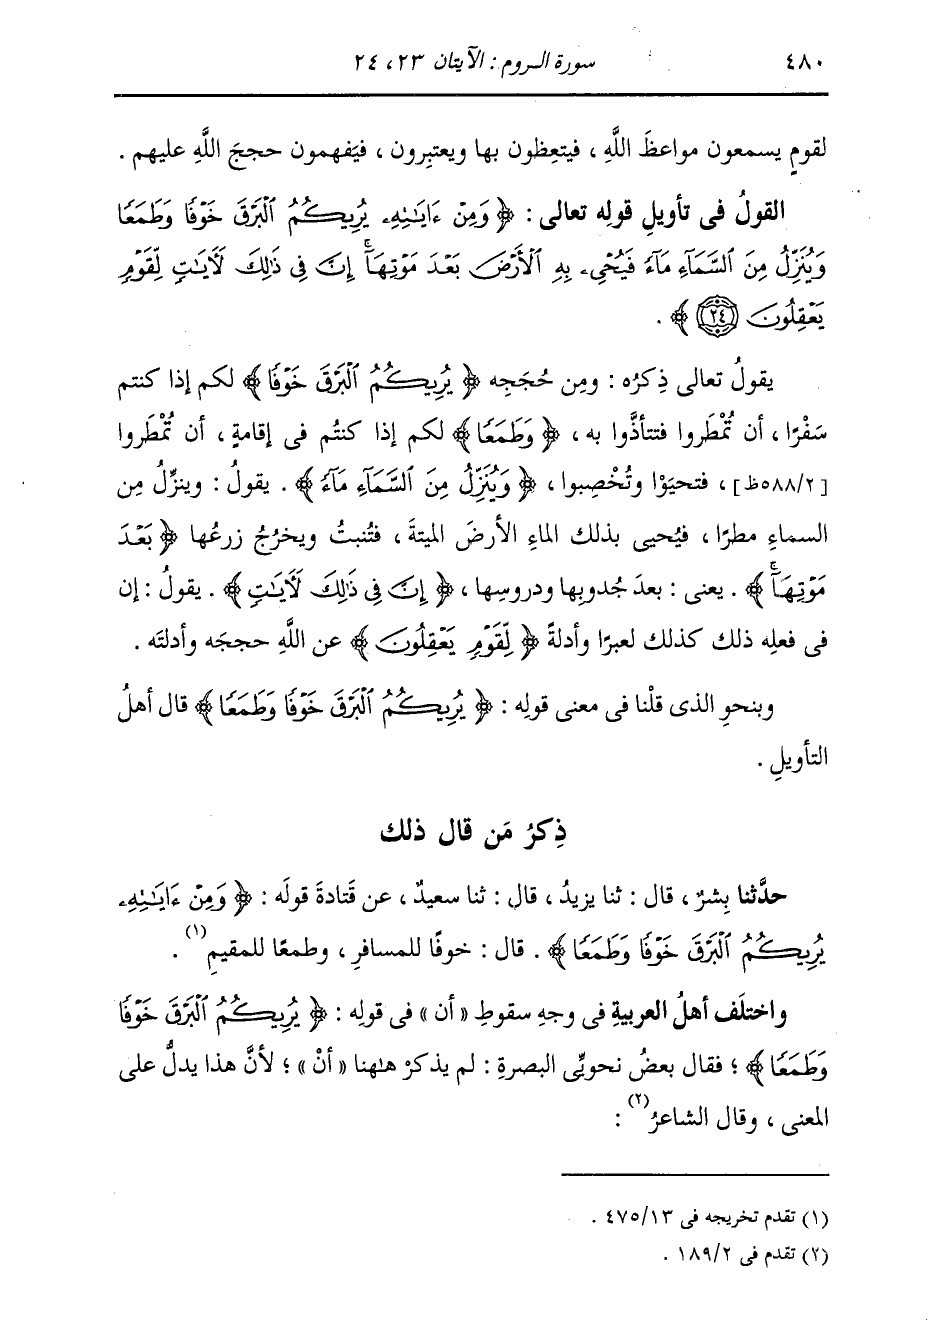 ٤٨٠ سورة الروم : الآيتان ٢٣، ٢٤
لقومٍ يسمعون مواعظَ اللَّهِ ، فيتعِظون بها ويعتبِرون ، فيَفهمون حججَ اللَّهِ عليهم .
القولُ فى تأويلِ قولِه تعالى : ﴿ وَمِنْ ءَايَـٰتِهِۦ يُرِيكُمُ ٱلْبَرْقَ خَوْفًا وَطَمَعًا
وَيُنَزِّلُ مِنَ ٱلسَّمَآءِ مَآءً فَيُحْىِۦ بِهِ ٱلْأَرْضَ بَعْدَ مَوْتِهَآ ۚ إِنَّ فِى ذَٰلِكَ لَـَٔايَـٰتٍ لِّقَوْمٍ
يَعْقِلُونَ ﴿٢٤﴾ ﴾ .
يقولُ تعالى ذِكرُه : ومِن حُججِه ﴿ يُرِيكُمُ ٱلْبَرْقَ خَوْفًا ﴾ لكم إذا كنتم
سَفْرًا ، أن تُمْطَروا فتتأذَّوا به ، ﴿ وَطَمَعًا ﴾ لكم إذا كنتُم فى إقامةٍ ، أن تُمْطَروا
[٥٨٨/٢ظ] ، فتحيَوْا وتُخْصِبوا ، ﴿ وَيُنَزِّلُ مِنَ ٱلسَّمَآءِ مَآءً ﴾ . يقولُ : وينزِّلُ مِن
السماءِ مطرًا ، فيُحيى بذلك الماءِ الأرضَ الميتةَ ، فتُنبتُ ويخرُجُ زرعُها ﴿ بَعْدَ
مَوْتِهَآ ۚ ﴾ . يعنى : بعدَ جُدوبِها ودروسِها ، ﴿ إِنَّ فِى ذَٰلِكَ لَـَٔايَـٰتٍ ﴾ . يقولُ : إن
فى فعلِه ذلك كذلك لعبرًا وأدلةً ﴿ لِّقَوْمٍ يَعْقِلُونَ ﴾ عن اللَّهِ حججَه وأدلتَه .
وبنحوِ الذى قلْنا فى معنى قولِه : ﴿ يُرِيكُمُ ٱلْبَرْقَ خَوْفًا وَطَمَعًا ﴾ قال أهلُ
التأويلِ .
ذِكرُ مَن قال ذلك
حدَّثنا بِشرٌ ، قال : ثنا يزيدُ ، قال : ثنا سعيدٌ ، عن قَتادةَ قولَه : ﴿ وَمِنْ ءَايَـٰتِهِۦ
يُرِيكُمُ ٱلْبَرْقَ خَوْفًا وَطَمَعًا ﴾ . قال : خوفًا للمسافرِ ، وطمعًا للمقيمِ (١) .
واختلَف أهلُ العربيةِ فى وجهِ سقوطِ «أن» فى قولِه : ﴿ يُرِيكُمُ ٱلْبَرْقَ خَوْفًا
وَطَمَعًا ﴾ ؛ فقال بعضُ نحويِّى البصرةِ : لم يذكرْ هٰهنا «أنْ» ؛ لأنَّ هذا يدلُّ على
المعنى ، وقال الشاعرُ (٢) :
(١) تقدم تخريجه فى ٤٧٥/١٣ .
(٢) تقدم فى ١٨٩/٢ .